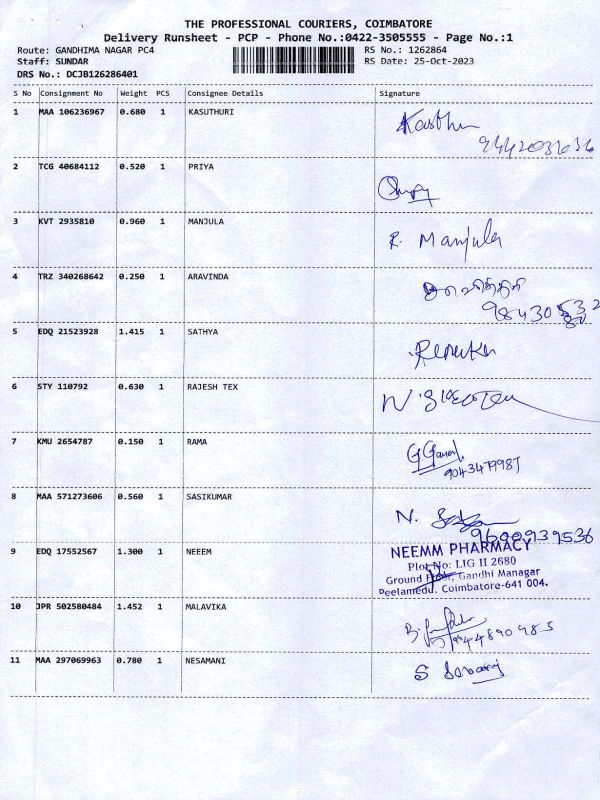 THE PROFESSIONAL COURIERS, COIMBATORE
Delivery Runsheet - PCP - Phone No.:0422-3505555 - Page No.:1
Route: GANDHIMA NAGAR PC4 RS No.: 1262864
Staff: SUNDAR RS Date: 25-Oct-2023
DRS No.: DCJB126286401
S No Consignment No Weight PCS Consignee Details Signature
1 MAA 106236967 0.680 1 KASUTHURI
2 TCG 40684112 0.520 1 PRIYA
3 KVT 2935810 0.960 1 MANJULA R. Manjula
4 TRZ 340268642 0.250 1 ARAVINDA
98430
5 EDQ 21523928 1.415 1 SATHYA Renuka
6 STY 110792 0.630 1 RAJESH TEX
7 KMU 2654787 0.150 1 RAMA
8 MAA 571273606 0.560 1 SASIKUMAR N.
9600939536
9 EDQ 17552567 1.300 1 NEEEM NEEMM PHARMACY
Plot No: LIG II 2680
Ground Floor, Gandhi Managar
Peelamedu, Coimbatore-641 004.
10 JPR 502580484 1.452 1 MALAVIKA
11 MAA 297069963 0.780 1 NESAMANI